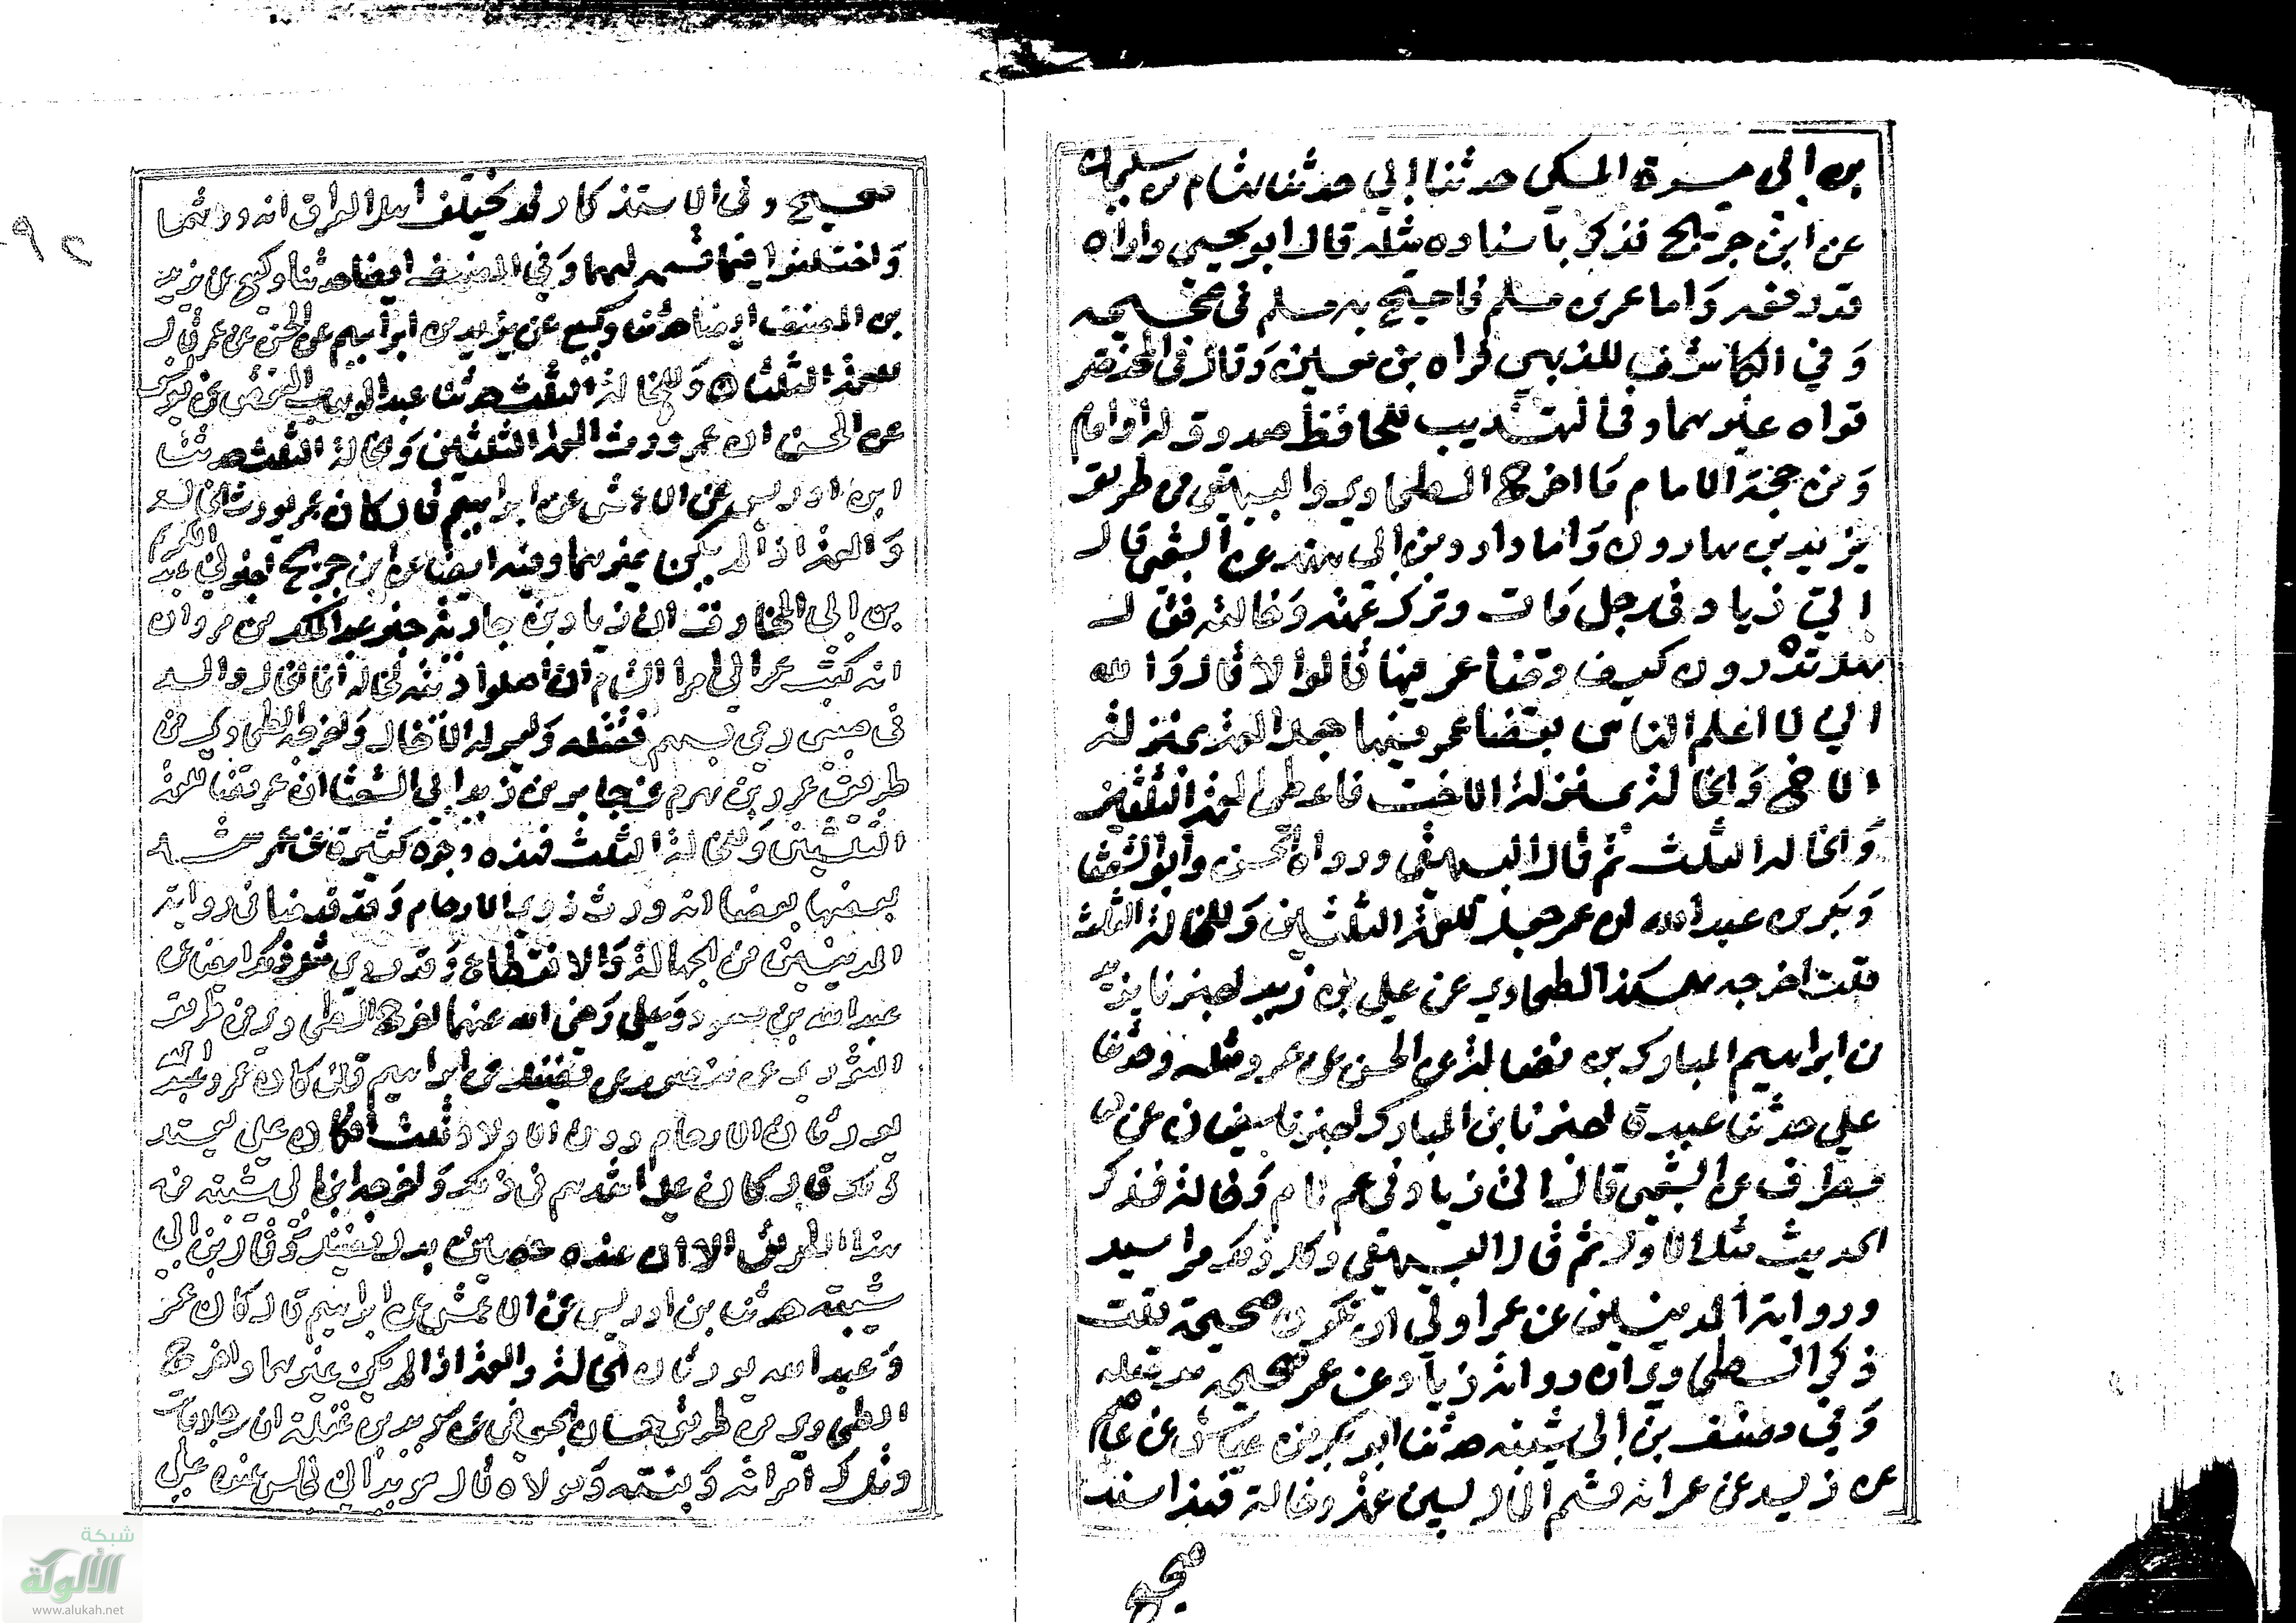 بن ابى ميسرة المكى حدثنا ابى حدثنا هشام بن سليمان
عن ابن جريج فذكر باسناده مثله قال ابو يحيى واراه
قد رفعه وَاما عمرى مسلم فاحتج به مسلم فى صحيحه
وَفي الكاشف للذهبي قراه بن معين وَقال فى المختصر
قواه غيرهما وفى التهذيب للحافظ صدوق له اوهام
وَمن حجة الامام مَا اخرج الطحاوى والبيهقى من طريق
يزيد بن هارون وَانا داود بن ابى هند عن الشعبى قال
اتي زياد فى رجل مَات وترك عمته وَخالته فقال
هل تدرون كيف وقضا عمر فيها قالوا لا قال وَالله
اني لا اعلم الناس بقضا عمر فيها جعل العمة بمنزلة
الاخ وَالخالة بمنزلة الاخت فاعطى العمة الثلثين
وَالخالة الثلث ثم قال البيهقى ورواه الحسن وابو الشعثا
وَبكر بن عبد الله ان عمر جعل للعمة الثلثين وَللخالة الثلث
قلت اخرجه هكذا الطحاوى عن على بن زيد اخبرنا يزيد
بن ابراهيم المبارك بن فضالة عن الحسن عن عمر مثله وحدثنا
علي حدثنا عبدة اخبرنا بن المبارك اخبرنا سفيان عن
مطرف عن الشعبى قال اتى زياد فى عم لام وَخالة فذكر
الحديث مثل الاول ثم قال البيهقى وكل ذلك مراسيل
ورواية المدنيين عن عمر اولي ان تكون صحيحة قلت
ذكر الطحاوى ان رواية زياد عن عمر صحيحه متصله
وَفي مصنف بن ابى شيبه حدثنا ابو بكر بن عياش عن عاصم
عن زيد عن عمر انه قسم المال بين عمة وخالة فهذا سند
صحيح
صحيح وفى الاستذكار لم يختلف اهل العراق انه ورثهما
وَاختلفوا فيما قسمه لهما وَفي المصنف ايضا حدثنا وكيع عن يزيد
بن المصنف ايضا حدثنا وكيع عن يزيد بن ابراهيم عن الحسن عن عمر قال
للعمة الثلثان وَللخالة الثلث حدثنا عبد الوهاب الثقفى عن يونس
عن الحسن ان عمر ورث العمة الثلثين وَالخالة الثلث حدثنا
ابن ادريس عن الاعمش عن ابراهيم قال كان عمر يورث الخالة
وَالعمة اذا لم يكن غيرهما وفيه ايضا عن ابن جريج اخبرني عبد الكريم
بن ابى المخارق ان زياد بن جارية اخبر عبد الملك بن مروان
انه كتب عمر الى امرا الشام ان
فى صبى رمى بسهم فقتله وَلم له الا خال وَاخرجه الطحاوى من
طريق عمرو بن هرم عن جابر بن زيد ابى الشعثا ان عمر قضا للعمة
الثلثين وَللخالة الثلث فهذه وجوه كثيرة عن عمر يشد
بعضها بعضا انه ورث ذوى الارحام وَقد قدمنا فى رواية
المدنيين من الجهالة وَالانقطاع وَقد روى مثل ذلك ايضا عن
عبد الله بن مسعود وَعلى رَضى الله عنهما اخرج الطحاوى من طريق
الثورى عن منصور عن فضيل عن ابراهيم قال كان عمر وعبد الله
يورثان الارحام دون الاولاء قلت افكان على يشدد
ذلك قال كان على اشدهم فى ذلك وَاخرجه ابن ابى شيبه من
هذا الطريق الا ان عنده حصين بدل فضيل وَقال بن ابى
شيبه حدثنا بن ادريس عن الاعمش عن ابراهيم قال كان عمر
وَعبد الله يورثان الخالة والعمة اذا لم يكن غيرهما واخرج
الطحاوى من طريق حسان الجعفى عن سويد بن غفلة ان رجلا مات
وترك امراته وَبنته وَمولاه قال سويد انى جالس عند على
٩٢
شبكة
الألوكة
www.alukah.net